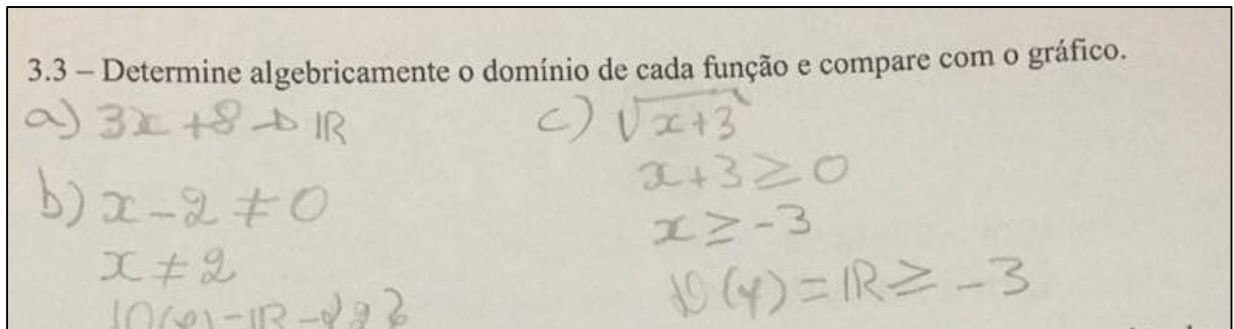 3.3 – Determine algebricamente o domínio de cada função e compare com o gráfico.
a) 3x+8→ IR
b) x-2≠0
x≠2
D(f)=IR-{2}
c) √x+3
x+3≥0
x≥-3
D(f)=IR≥-3